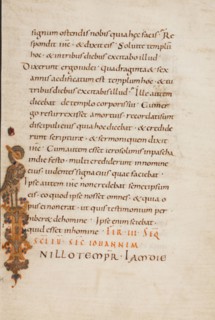 signum ostendis nobis quia hęc facis Re
spondit ihc · & dixit eis · Soluite templū
hoc · & in tribus diebus excitabo illud
Dixerunt ergo iudei · Quadraginta & sex
annis aedificatum est templum hoc · & tu
tribus diebus excitabis illud · Ille autem
dicebat de templo corporis sui · Cum er
go resurrexisset a mortuis · recordati sunt
discipuli eius quia hoc dicebat · & credide
runt scripturae · & sermoni quem dixit
ihc · Cum autem esset ierosolimis in pascha
in die festo · multi crediderunt in nomine
eius · uidentes signa eius quae faciebat ·
Ipse autem ihc non credebat semetipsum
eis · eo quod ipse nosset omnes · & quia o
pus ei non erat · ut quis testimonium per
hiberet de homine · Ipse enim sciebat ·
quid esset in homine · FER III SEQ
SCI EU SEC IOHANNEM
N ILLO TEMPR · IAM DIE